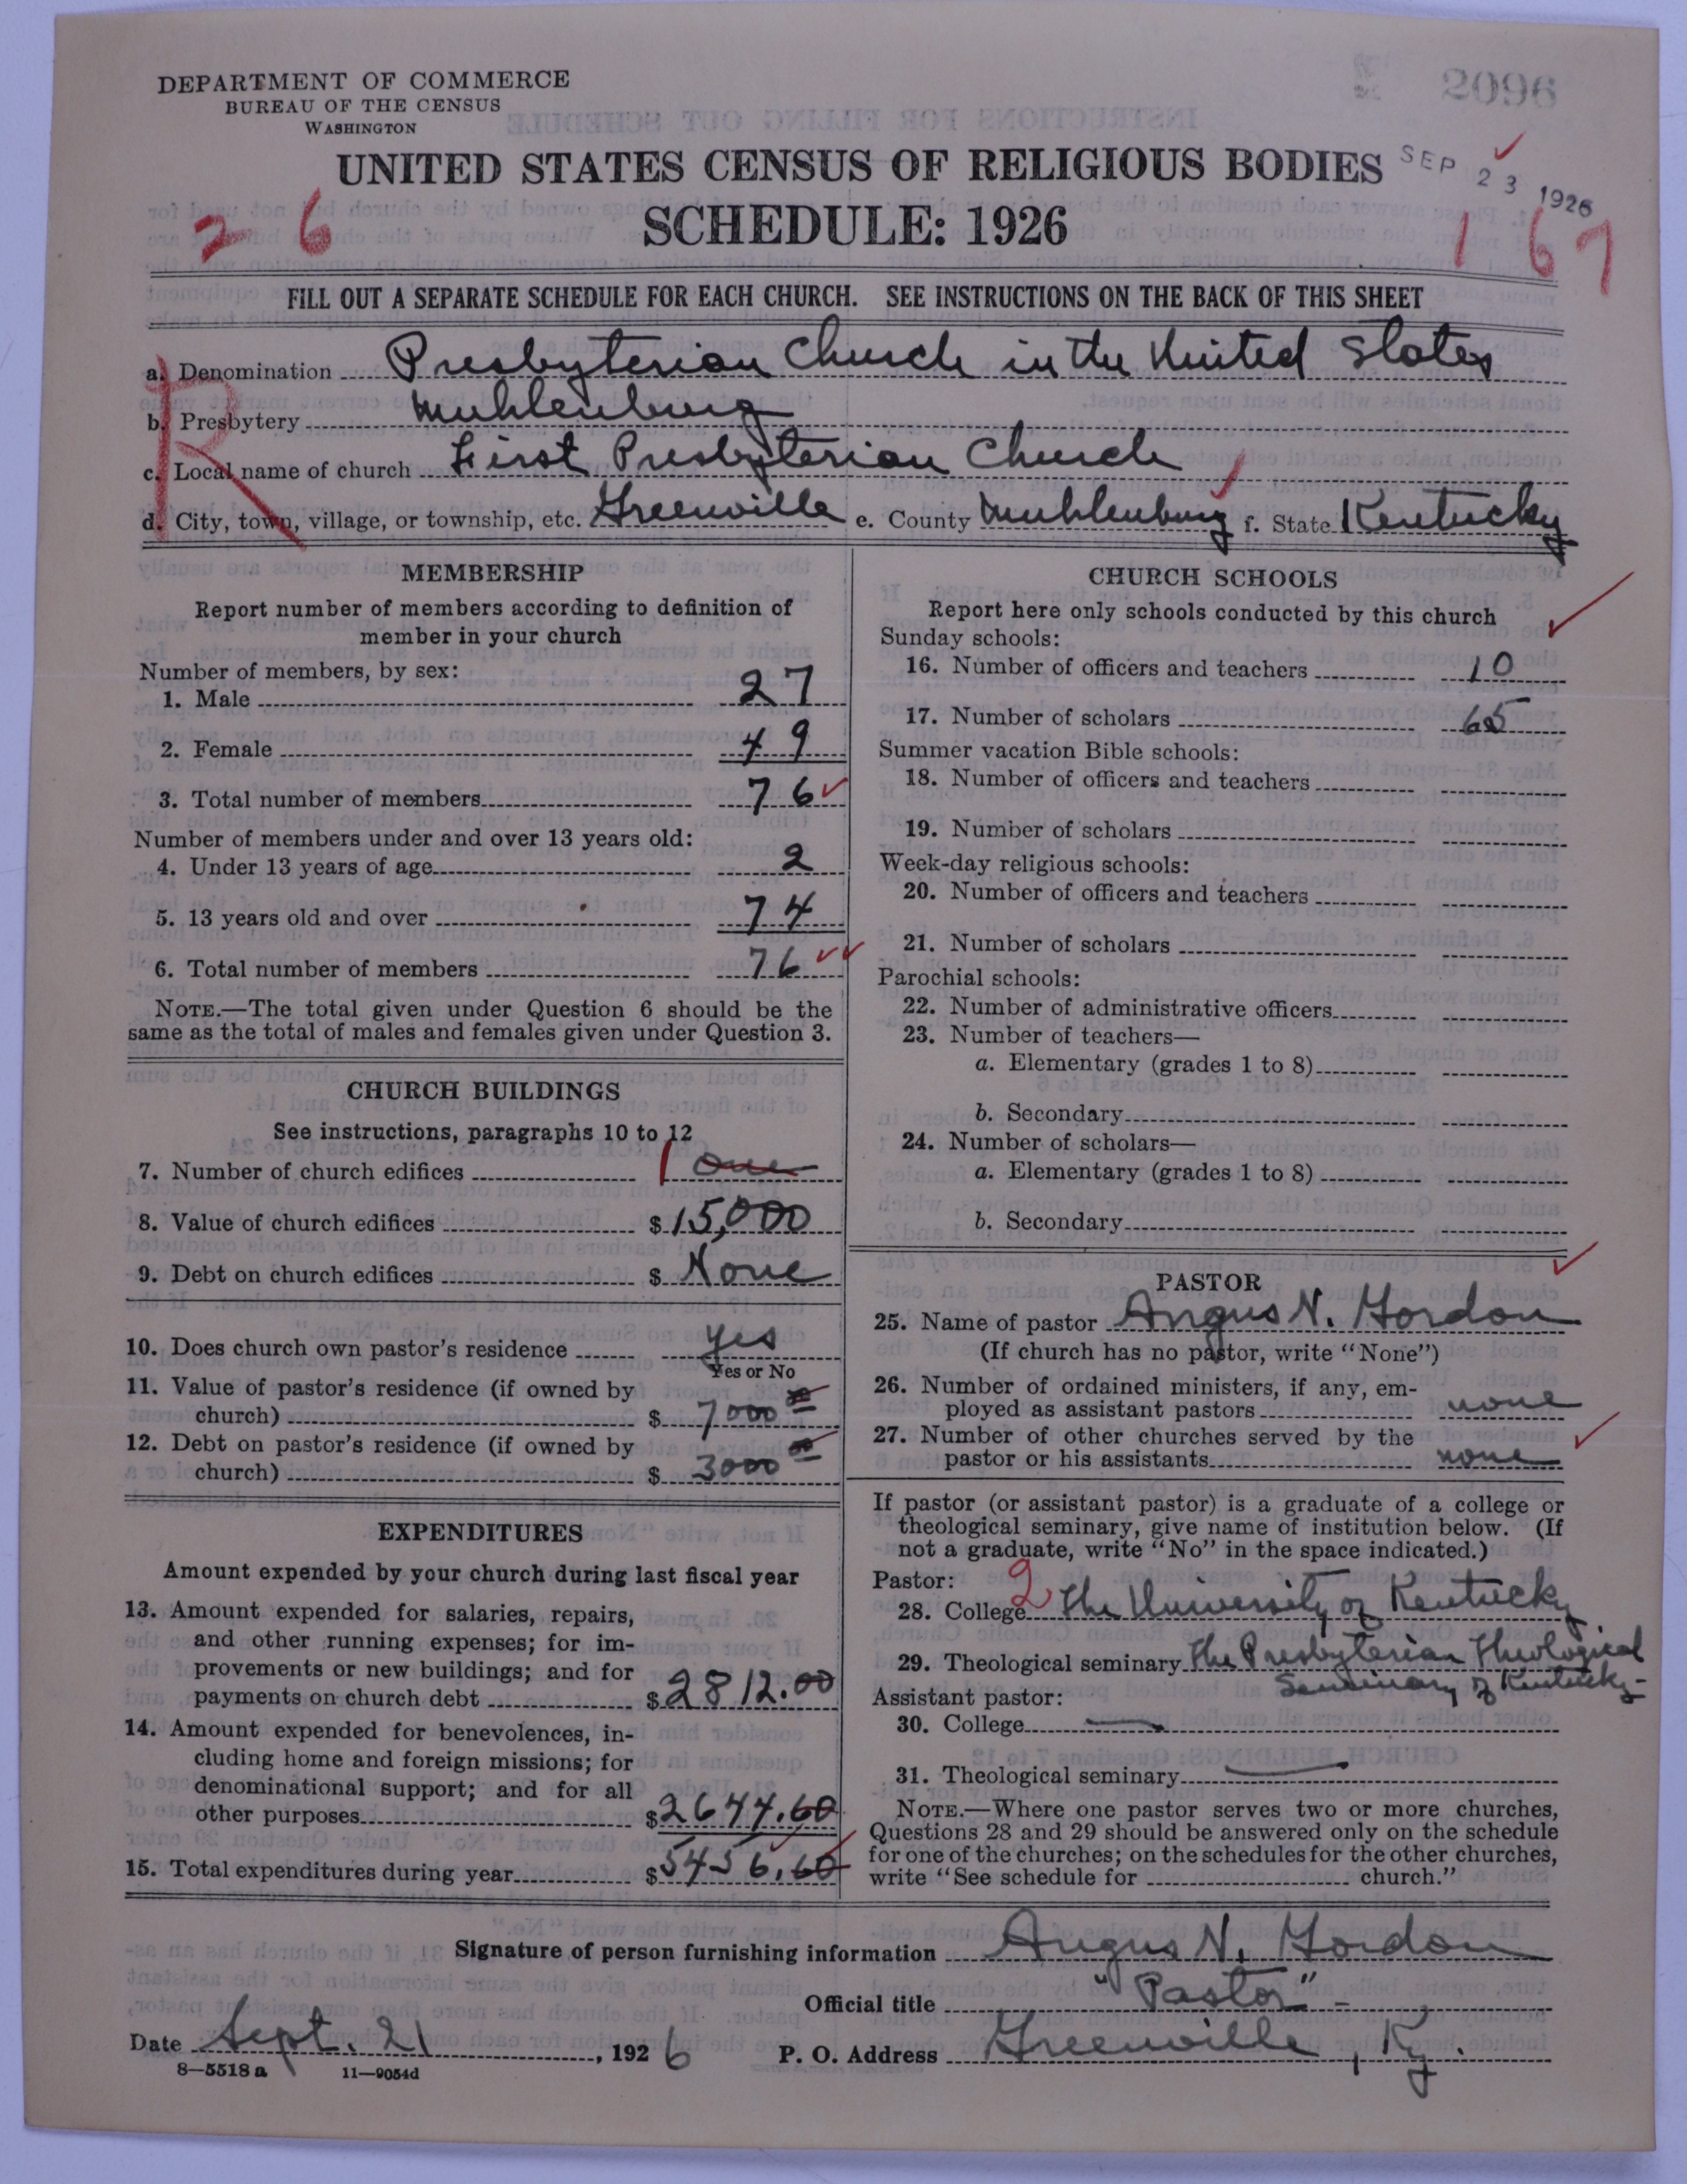 DEPARTMENT OF COMMERCE
BUREAU OF THE CENSUS
WASHINGTON
2096
UNITED STATES CENSUS OF RELIGIOUS BODIES
SEP 23 1926
SCHEDULE: 1926
26
167
FILL OUT A SEPARATE SCHEDULE FOR EACH CHURCH. SEE INSTRUCTIONS ON THE BACK OF THIS SHEET
R
a. Denomination Presbyterian Church in the United States
b. Presbytery Muhlenburg
c. Local name of church First Presbyterian Church
d. City, town, village, or township, etc. Greenville e. County Muhlenburg f. State Kentucky
MEMBERSHIP
Report number of members according to definition of
member in your church
Number of members, by sex:
1. Male 27
2. Female 49
3. Total number of members 76
Number of members under and over 13 years old:
4. Under 13 years of age 2
5. 13 years old and over 74
6. Total number of members 76
NOTE.—The total given under Question 6 should be the
same as the total of males and females given under Question 3.
CHURCH BUILDINGS
See instructions, paragraphs 10 to 12
7. Number of church edifices 1 one
8. Value of church edifices $ 15,000
9. Debt on church edifices $ None
10. Does church own pastor's residence yes
Yes or No
11. Value of pastor's residence (if owned by
church) $ 7000 00
12. Debt on pastor's residence (if owned by
church) $ 3000 00
EXPENDITURES
Amount expended by your church during last fiscal year
13. Amount expended for salaries, repairs,
and other running expenses; for im-
provements or new buildings; and for
payments on church debt $ 2812.00
14. Amount expended for benevolences, in-
cluding home and foreign missions; for
denominational support; and for all
other purposes $ 2644.60
15. Total expenditures during year $ 5456.60
CHURCH SCHOOLS
Report here only schools conducted by this church
Sunday schools:
16. Number of officers and teachers 10
17. Number of scholars 65
Summer vacation Bible schools:
18. Number of officers and teachers
19. Number of scholars
Week-day religious schools:
20. Number of officers and teachers
21. Number of scholars
Parochial schools:
22. Number of administrative officers
23. Number of teachers—
a. Elementary (grades 1 to 8)
b. Secondary
24. Number of scholars—
a. Elementary (grades 1 to 8)
b. Secondary
PASTOR
25. Name of pastor Angus N. Gordon
(If church has no pastor, write "None")
26. Number of ordained ministers, if any, em-
ployed as assistant pastors none
27. Number of other churches served by the
pastor or his assistants none
If pastor (or assistant pastor) is a graduate of a college or
theological seminary, give name of institution below. (If
not a graduate, write "No" in the space indicated.)
Pastor: 2
28. College The University of Kentucky
29. Theological seminary The Presbyterian Theological
Seminary of Kentucky
Assistant pastor:
30. College
31. Theological seminary
NOTE.—Where one pastor serves two or more churches,
Questions 28 and 29 should be answered only on the schedule
for one of the churches; on the schedules for the other churches,
write "See schedule for church."
Signature of person furnishing information Angus N. Gordon
Official title "Pastor"
Date Sept. 21, 1926 P. O. Address Greenville, Ky.
8—5518 a 11—9054d